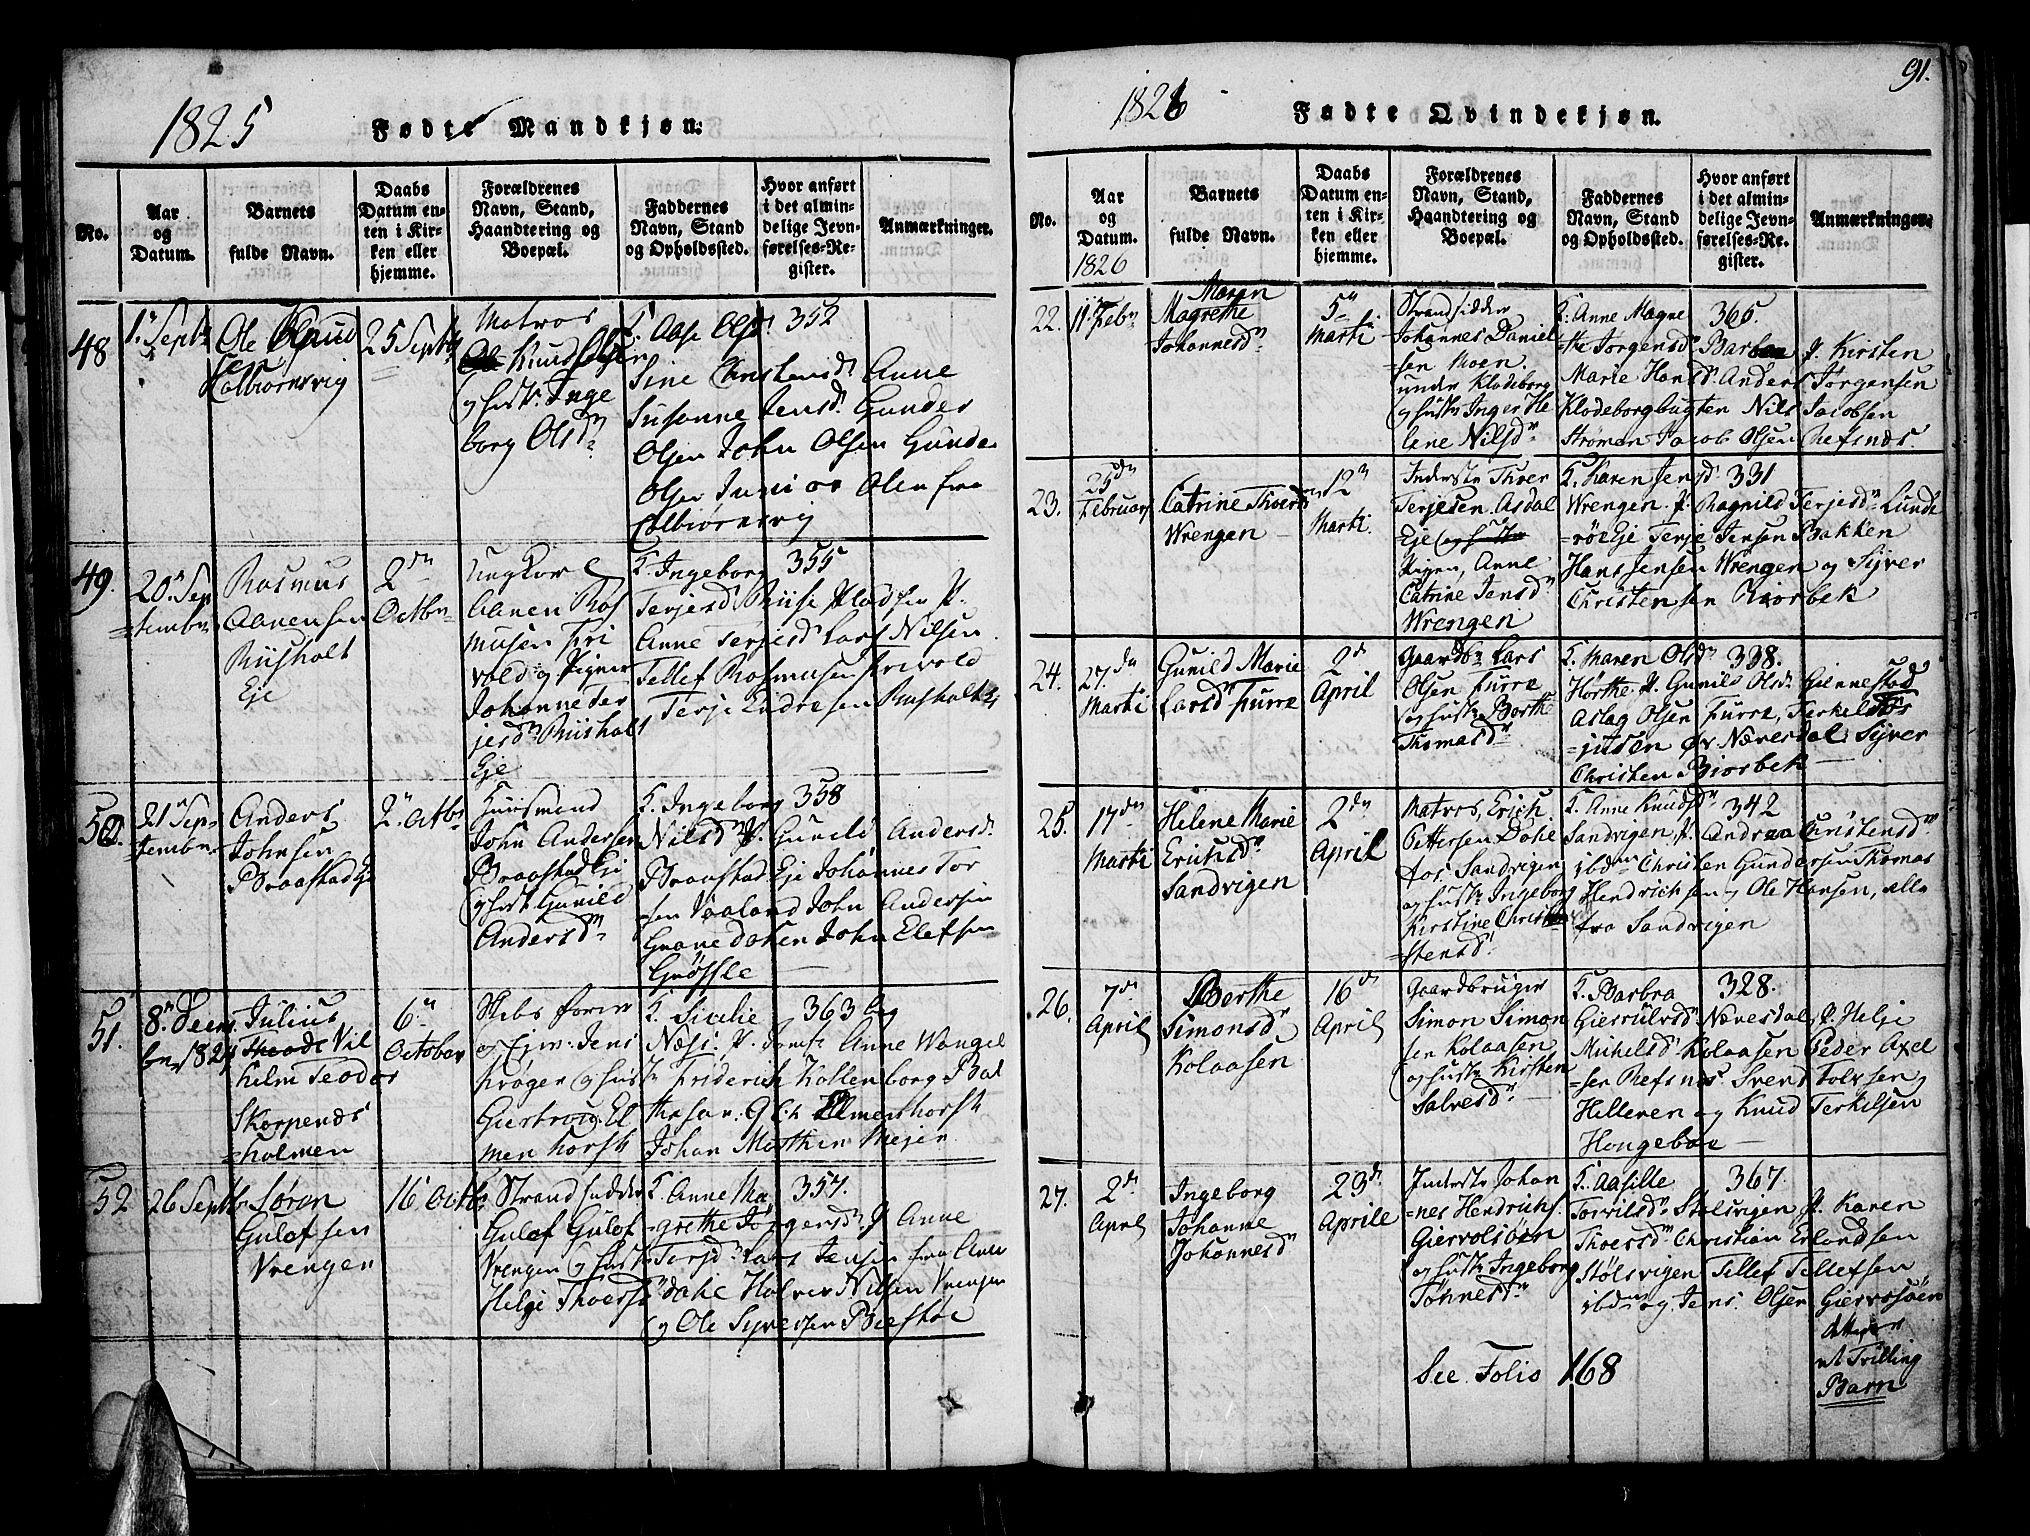 1825
Fødte Mandkjøn.
No.
Aar
og
Datum.
Barnets
fulde Navn.
Daabs
Datum en-
ten i Kir-
ken eller
hjemme.
Forældrenes
Navn, Stand,
Haandtering og
Boepæl.
Faddernes
Navn, Stand
og Opholdssted.
Hvor anført
i det almin-
delige Jevn-
førelses-Re-
gister.
Anmærkninger.
48
1n Septbr
Ole Knud
sen
Colbiørnsvig
25 Septbr
Matros
Knud Olsen
og hustr. Inge
borg Olsdr
F. Aase Olsd 352
Sine Christensd Anne
Susanne Jensd. Gunder
Olsen John Olsen Gunder
Olsen Juni os Olen fra
Colbiørnsvig
49.
20n Sep
tembr
Rasmus
Aanensen
Riisholt
Eje
2den
Octbr
Ungkarl
Aanen Ras
musen Fri
vold og Pigen
Johanne Ter
jesdr Riisholt
Eje
F. Ingeborg 355
Terjesd Riise Pladsen P.
Anne Terjesd Lars Nilsen
Tellef Rasmusen Frivold
Terje Endresen Riisholt Ej
50.
21n Sep-
tembr
Anders
Johnsen
Braastad Eje
2n Octbr
Huusmand
John Andersen
Braastad Eje
og hustr. Gunild
Andersdr
F. Ingeborg 358
Nilsd P. Gunild Andersd.
Braastad Eje Johannes Tor
sen Vaaland John Andersen
Granedalen John Elefsen
Grøssle
51.
8n Decem
br 1824
Julius
Theodr Vil
helm Teodor
Skarpnes
holmen
6n
October
Skibs fører
og Ejer Jens
Krøger og hust
Giertrud El
menhorst
F. Sicelie 363
Næss P. Jomfr Anne Wangel
Friderich Kallenborg Bal
thasar G. C. h Elmenhorst
Johan Mathias Mejer
52
26 Septbr
Søren
Gulofsen
Vrengen
16 Octbr
Strandsidder
Gulof Gulof
Vrengen og hustr
Helge Thoersd
F. Anne Ma 357.
grethe Jørgensd. P Anne
Tersd Lars Jensen fra Aren
dahl Halvor Nilsen Vrengen
og Ole Syversen
1826
Fødte Qvindekjøn.
91.
No.
Aar
og
Datum.
1826
Barnets
fulde Navn.
Daabs
Datum en-
ten i Kir-
ken eller
hjemme.
Forældrenes
Navn, Stand,
Haandtering og
Boepæl.
Faddernes
Navn, Stand
og Opholdssted.
Hvor anført
i det almin-
delige Jevn-
førelses-Re-
gister.
Anmærkninger.
22.
11n Febr
Maren
Magrethe
Johannesdr
5n
Marti
Strandsidder
Johannes Daniel
sen Moen.
under Klodeborg
og hustr Inger He
lene Nilsdr
F. Anne Magre 365.
the Jørgensd Barboe P. Kirsten
Marie Hansd. Anders Jørgensen
Klodeborgbugten Nils Jacobsen
Strømmen Jacob Olsen Refsnes.
23.
25dn
Februar
Catrine Thoersd
Wrengen
12n
Marti.
Inderste Thoer
Terjesen Asdal
Eje og hustr
Pigen, Anne
Catrine Jensdr
Wrengen
F. Karen Jensd. 331
Wrengen. P. Ragnild Terjesdr Lunde
røe Eje Terje Jensen Bakken
Hans Jensen Wrengen og Syver
Christensen Biorbek
24.
27dn
Marti
Gunild Marie
Larsd Furre
2d
April
Gaardbr Lars
Olsen Furre
og hustr Berthe
Thomasdr
F. Maren Olsdr 338.
Hørthe P. Gunild Olsd. Giennestad
Aslag Olsen Furre, Terkel
jusen Øv Næresdal Syver
Christen Biorbek
25.
17dn
Marti
Helene Marie
Erichsdr
Sandvigen
2dn
April
Matros, Erich
Pettersen Dahl
fos Sandvigen
og hustr Ingeborg
Kirstine Chri
stensd.
F. Anne Knudsdr 342
Sandvigen, P. Andrea Christensdr
ibdm Christen Gundersen Thomas
Hendrichsen og Ole Hansen, alle
fra Sandvigen
26.
7dn
April
Berthe
Simonsdr
Kolaasen
16dn
April
Gaardbruger
Simon Simon
sen Kolaasen
og hustr Kirsten
Salvesdr
F. Barbra 328.
Gierrulvsd Næresdal, P. Helje
Michelsd Kolaasen Peder Axel
sen Refsnes Svend Tolvsen
Helleren og Knud Terkilsen
Hongeboe
27.
2dn
April
Ingeborg
Johanne
Johannesdr
23dn
Aprile
Inderste Johan
nes Hendrichs.
Giervolsøen
og hustr Ingeborg
Tønnesdr
F. Aasille 367.
Torvilsdr Stølsvigen P. Karen
Thoersdr Christian Erlandsen
Stølsvigen Tellef Tellefsen
ibdm og Jens Olsen Giervolsøen
et Trilling
Barn
See Folio 168